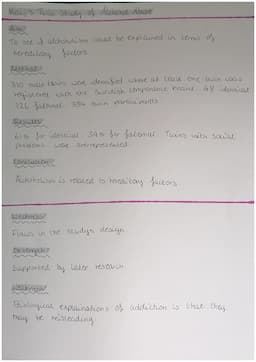 Kaij's Twin Study of Alcohol Abuse
Aim
To see if alcoholism could be explained in terms of
hereditary factors.
Method
310 male twins were identified where at least one twin was
registered with the Swedish temperance board. 48 identical
126 faternal. 384 twin participants
Results
61% for identical 39% for faternal. Twins with social
problems were overrepresented.
Conclusion
Alcoholism is related to hereditary factors.
Weakness
Flaws in the study's design.
Strength
Supported by later research
Weakness
Biological explanations of addiction is that they
may be misleading.